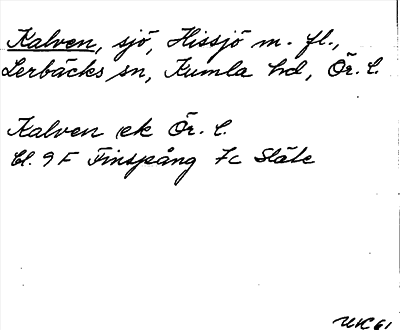 Kalven, sjö, Hissjö m. fl.,
Lerbäcks sn, Kumla hd, Ör. l.
Kalven ek Ör. l.
Bl. 9 F Finspång 7c Släte
UK 61